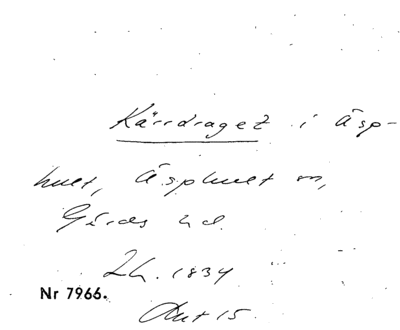 Kärrdraget i Äsp-
hult, Äsphult sn,
Gärds hd.
Lh. 1834
Nr 7966.
Akt 15.